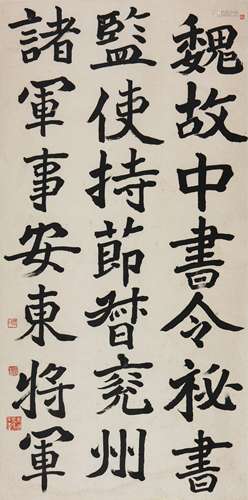 魏故中書令祕書
監使持節督兗州
諸軍事安東將軍